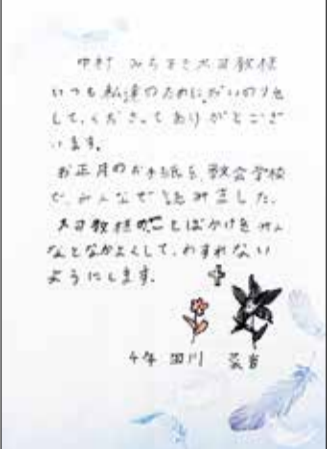 中村 みちあき大司教様
いつも私達のために、おいのりを
して、くださってありがとうござ
います。
お正月のお手紙を、教会学校
で、みんなで読みました。
大司教様のことばかけをみん
なとなかよくして、わすれない
ようにします。
4年 田川